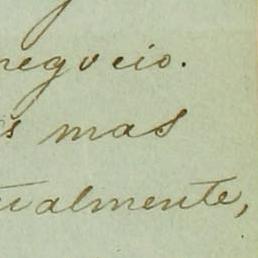 negocio.
s mas
ualmente,